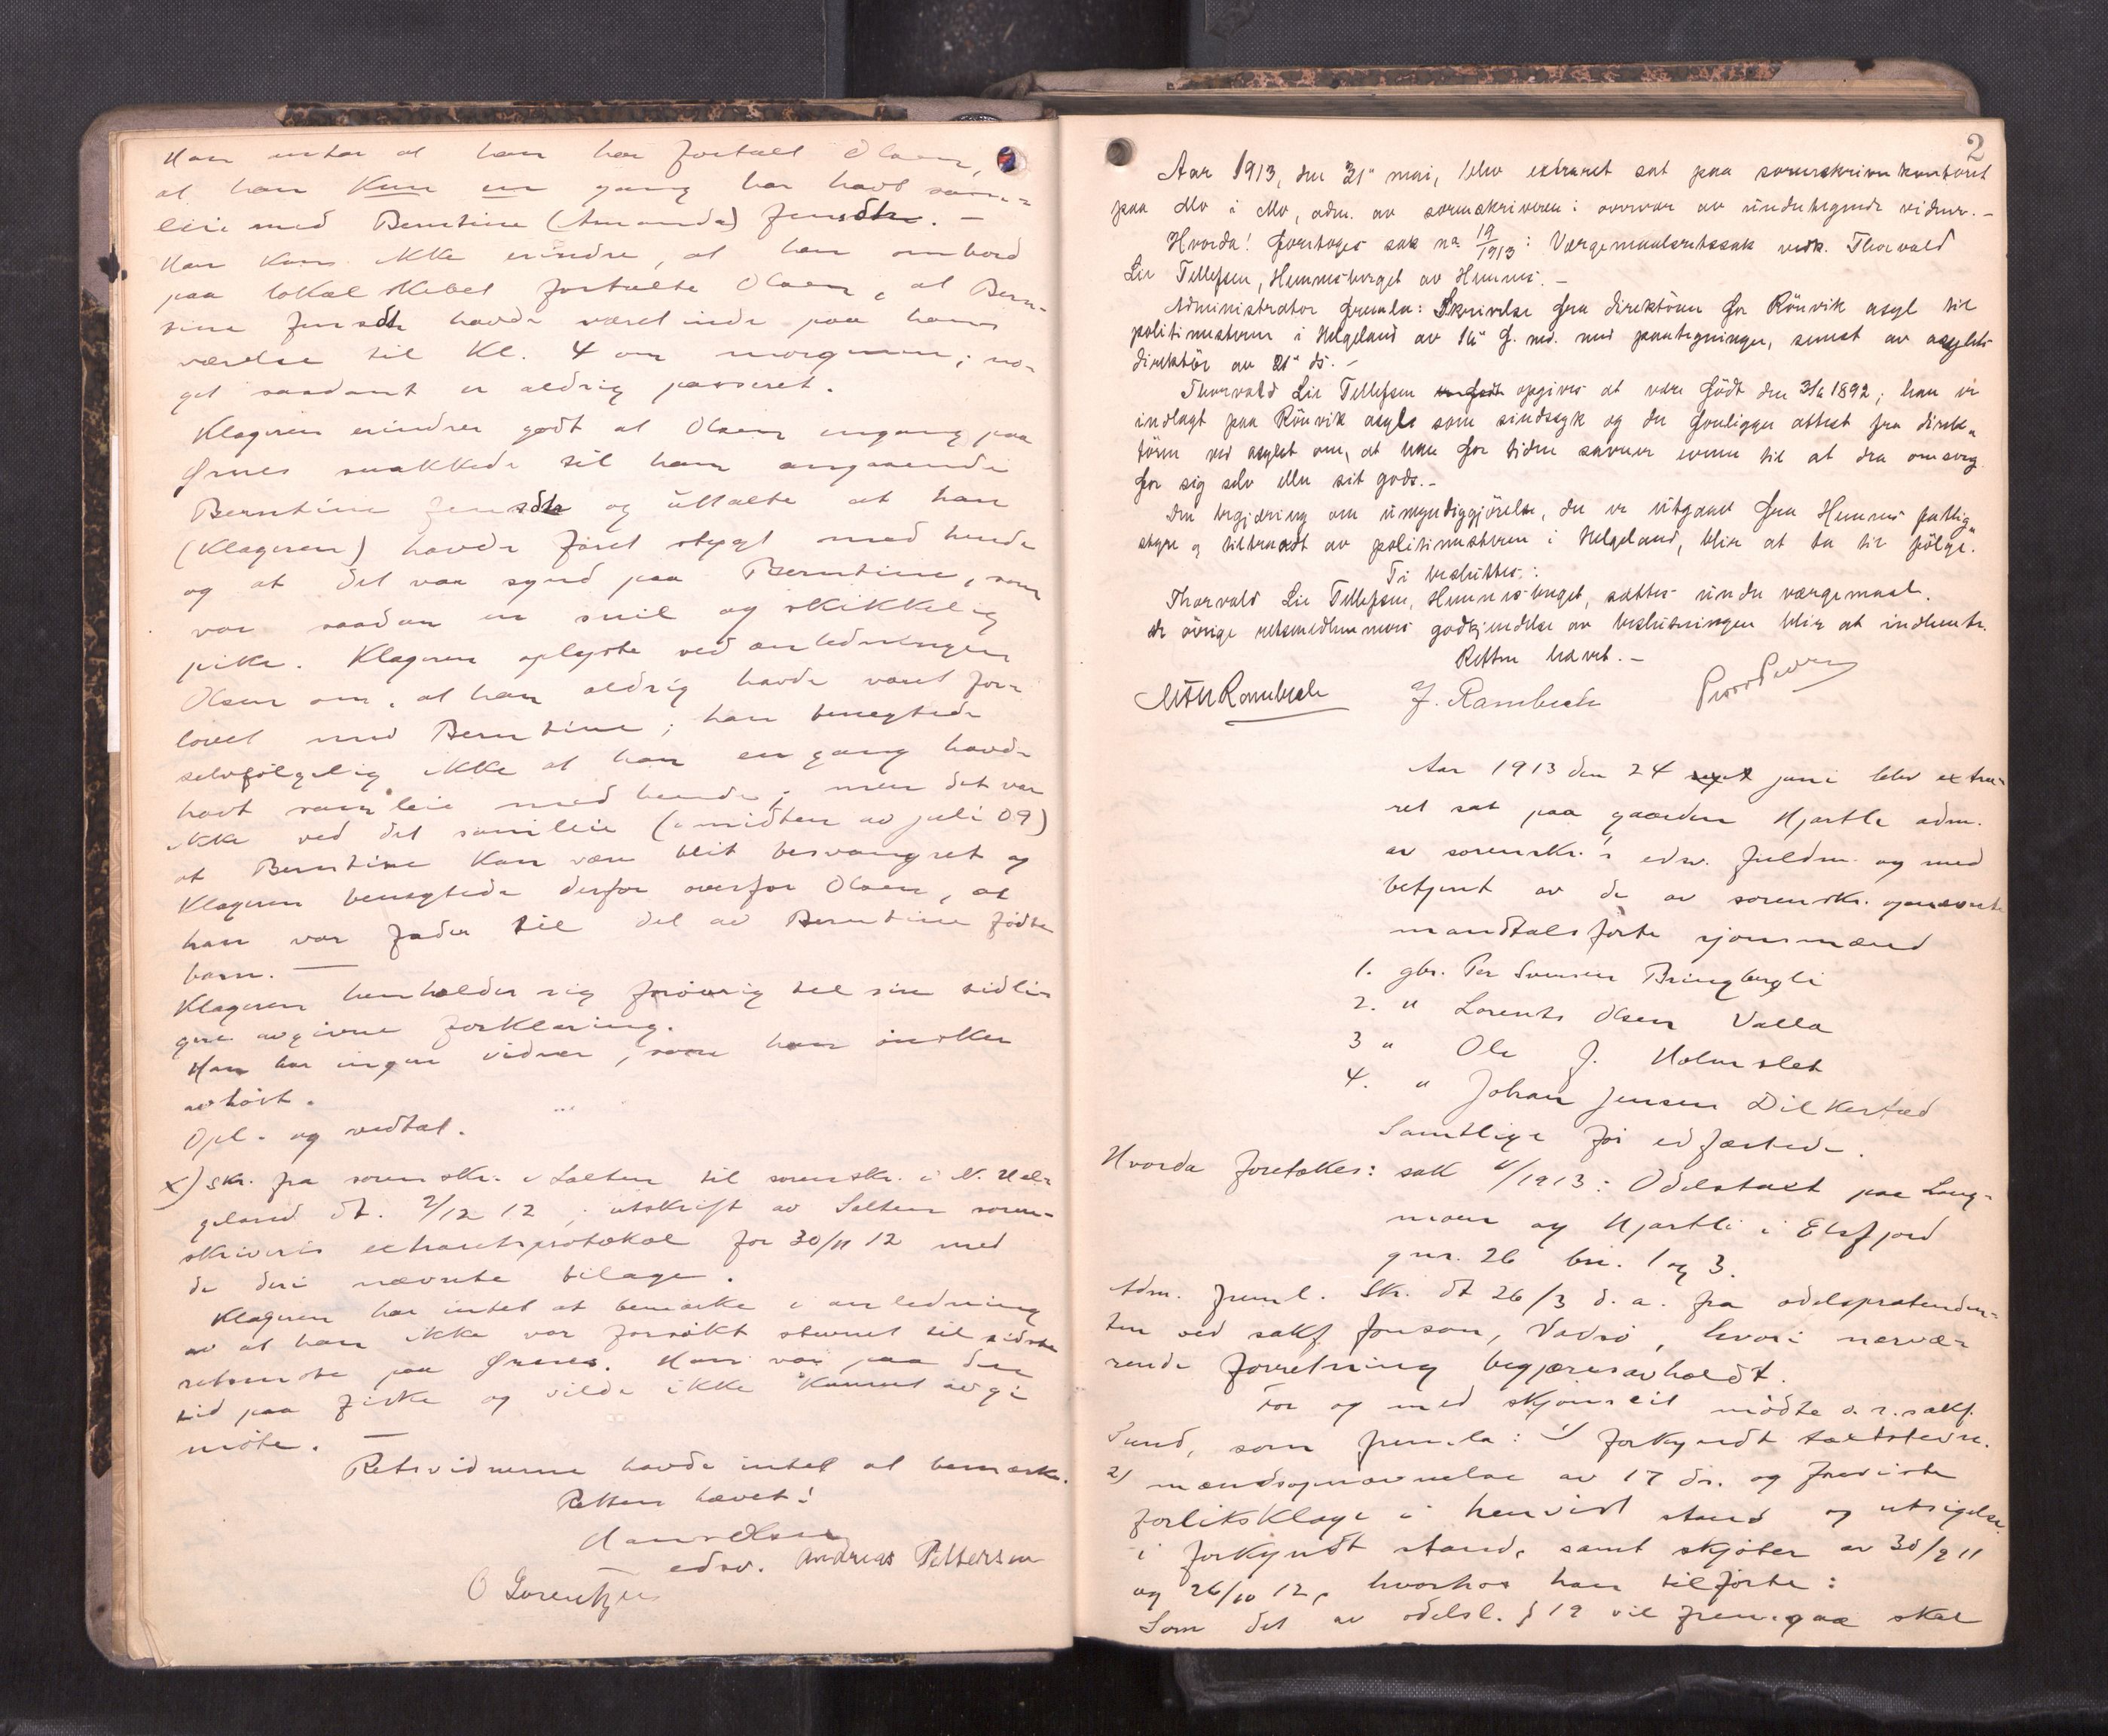 Han antar at han har fortalt Olsen,
at han kun en gang har havt sam-
leie med Berntine (Amanda) Jensdtr. -
Han kan ikke erindre, at han ombord
paa lokalskibet fortalte Olsen, at Bern-
tine Jensdtr havde været inde paa hans
værelse til kl. 4 om morgenen; no-
get saadant er aldrig passeret.
Klageren erindrer godt at Olsen engang paa
Ørnes snakkede til ham angaaende
Berntine Jensdtr og uttalte at han
(Klageren) havde faret stygt med hende
og at det var synd paa Berntine, som
var saadan en snil og skikkelig
pike. Klageren oplyste ved anledningen
Olsen om, at han aldrig havde været for-
lovet med Berntine; han benegtede
selvfølgelig ikke at han en gang havde
havt samleie med hende; men det var
ikke ved det samleie (i midten av juli 09)
at Berntine kan være blit besvangret og
Klageren benegtede derfor overfor Olsen, at
han var fader til det av Berntine fødte
barn. —
Klageren henholder sig forøvrig til sin tidli-
gere avgivne forklaring.
Han har ingen vidner, som han ønsker
avhørt.
Opl. og vedtat.
x) Skr. fra sorenskr. i Salten til sorenskr. i N. Hel-
geland dt. 2/12 12; utskrift av Salten soren-
skriveris extraretsprotokol for 30/11 12 med
de deri nævnte bilage.
Klageren har intet at bemerke i anledning
av at han ikke var forsøkt stevnet til sidste
retsmøte paa Ørnes. Han var paa den
tid paa fiske og vilde ikke kunnet avgi
møte. —
Retsvidnerne havde intet at bemerke.
Retten hævet!
Hans Olsen
edsv. Andreas Pettersen
O Lorentzen
2
Aar 1913, den 31" mai, blev extraret sat paa sorenskriverkontoret
paa Mo i Mo, adm. av sorenskriveren i overvær av undertegnede vidner. -
Hvorda! Foretoges sak no 19/1913: Værgemaalsretssak vedk. Thorvald
Lie Tellefsen, Hemnesberget av Hemnes. -
Administrator fremla: Skrivelse fra direktøren for Rönvik asyl til
politimesteren i Helgeland av 16" f. md. med paategninger, senest av asylets
direktör av 21" ds. -
Thorvald Lie Tellefsen opgives at være födt den 3/6 1892; han er
indlagt paa Rönvik asyl som sindssyk og der foreligger attest fra direk-
tören ved asylet om, at han for tiden savner evnen til at dra omsorg
for sig selv eller sit gods. -
Den begjæring om umyndiggjörelse, der er utgaat fra Hemnes fattig-
styre og tiltraadt av politimesteren i Helgeland, blir at ta til fölge.
Ti besluttes:
Thorvald Lie Tellefsen, Hemnesberget, sættes under værgemaal.
de övrige retsmedlemmers godkjendelse av beslutningen blir at indhente.
Retten hævet. -
Rambech J. Rambech
Aar 1913 den 24 juni blev extra-
ret sat paa gaarden Hjartli adm.
av sorenskr.'s edsv. fuldm. og med
betjent av de av sorenskr. opnævnte
mandtalsførte sjonsmænd
1. gbr. Per Svensen Bringbergli
2. " Lorents Olsen Valla
3 " Ole J. Holmslet
4. " Johan Jensen Dilkestad
Samtlige før edfæstede.
Hvorda foretakes: sak 4/1913: Odelstakt paa Lang-
moen og Hjartli i Elsfjord
gnr. 26 bnr. 1 og 3.
Adm. freml. Skr. dt 26/3 d. a. fra odelsprætenden-
ten ved sakf. Jonson, Vadsø, hvori nærvæ-
rende forretning begjæres avholdt.
For og med skjønseit mødte o. r. sakf.
Sund, som fremla: 1) forkyndt takststevn.
2) mændsopnævnelse av 17 ds. og foreviste
forliksklage i henvist stand og utsigelse
i forkyndt stand, samt skjøter av 30/9 11
og 26/10 12, hvorhos han tilførte:
Som det av odelsl. § 19 vil fremgaa skal